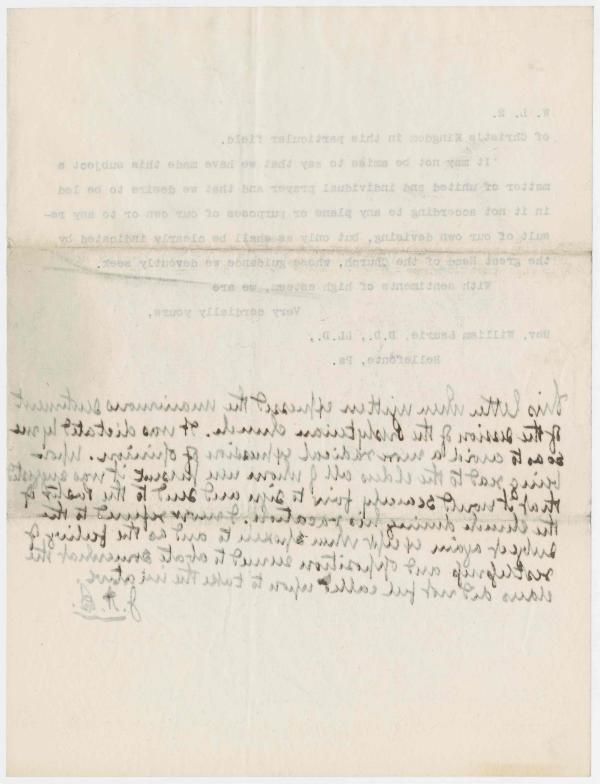 W. L. 2.
of Christ's Kingdom in this particular field.
It may not be amiss to say that we have made this subject a
matter of united and individual prayer and that we desire to be led
in it not according to any plans or purposes of our own or to any re-
sult of our own devising, but only as shall be clearly indicated by
the great Head of the Church, whose guidance we devoutly seek.
With sentiments of high esteem, we are
Very cordially yours,
Rev. William Laurie, D.D., LL.D.,
Bellefonte, Pa.
This letter when written expressed the unanimous sentiment
of the session of the Presbyterian church. It was dictated by me
so as to avoid a more radical expression of opinion. Upon
being read to the elders all of whom were present it was suggested
that it might scarcely be fair to sign and send to the Pastor of
the church during his vacation. I never referred to the
subject again except when spoken to and as the feeling of
restlessness and opposition seemed to abate somewhat the
elders did not feel called upon to take the iniative.
J. A. B.